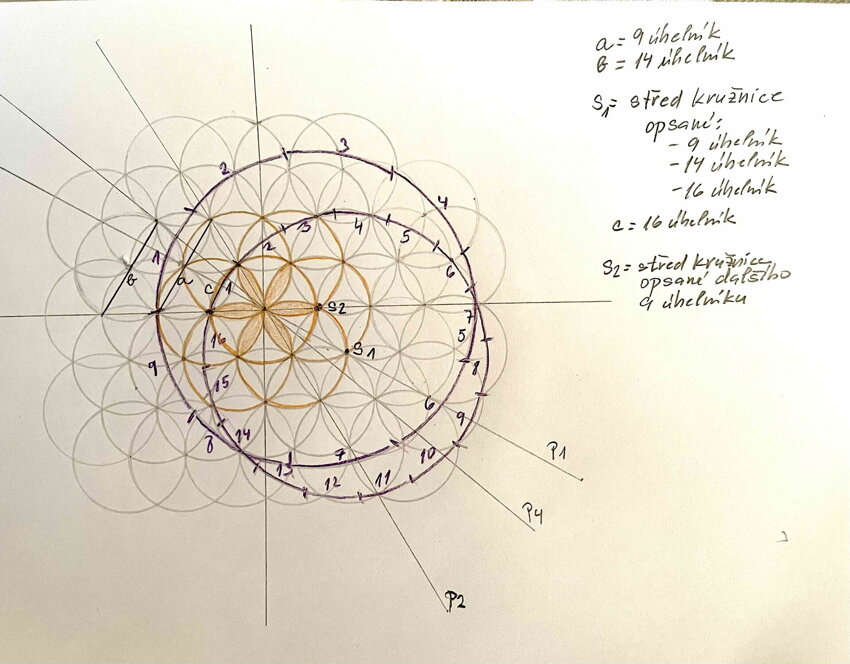 a = 9 úhelník
b = 14 úhelník
S1= střed kružnice
opsané:
- 9 úhelník
- 14 úhelník
- 16 úhelník
c = 16 úhelník
S2= střed kružnice
opsané dalšího
9 úhelníku
3
2
4
1
b
a
c
1
2
3
4
5
6
S2
7
5
S1
16
8
9
15
6
9
8
14
13
7
10
12
11
P1
P4
P2